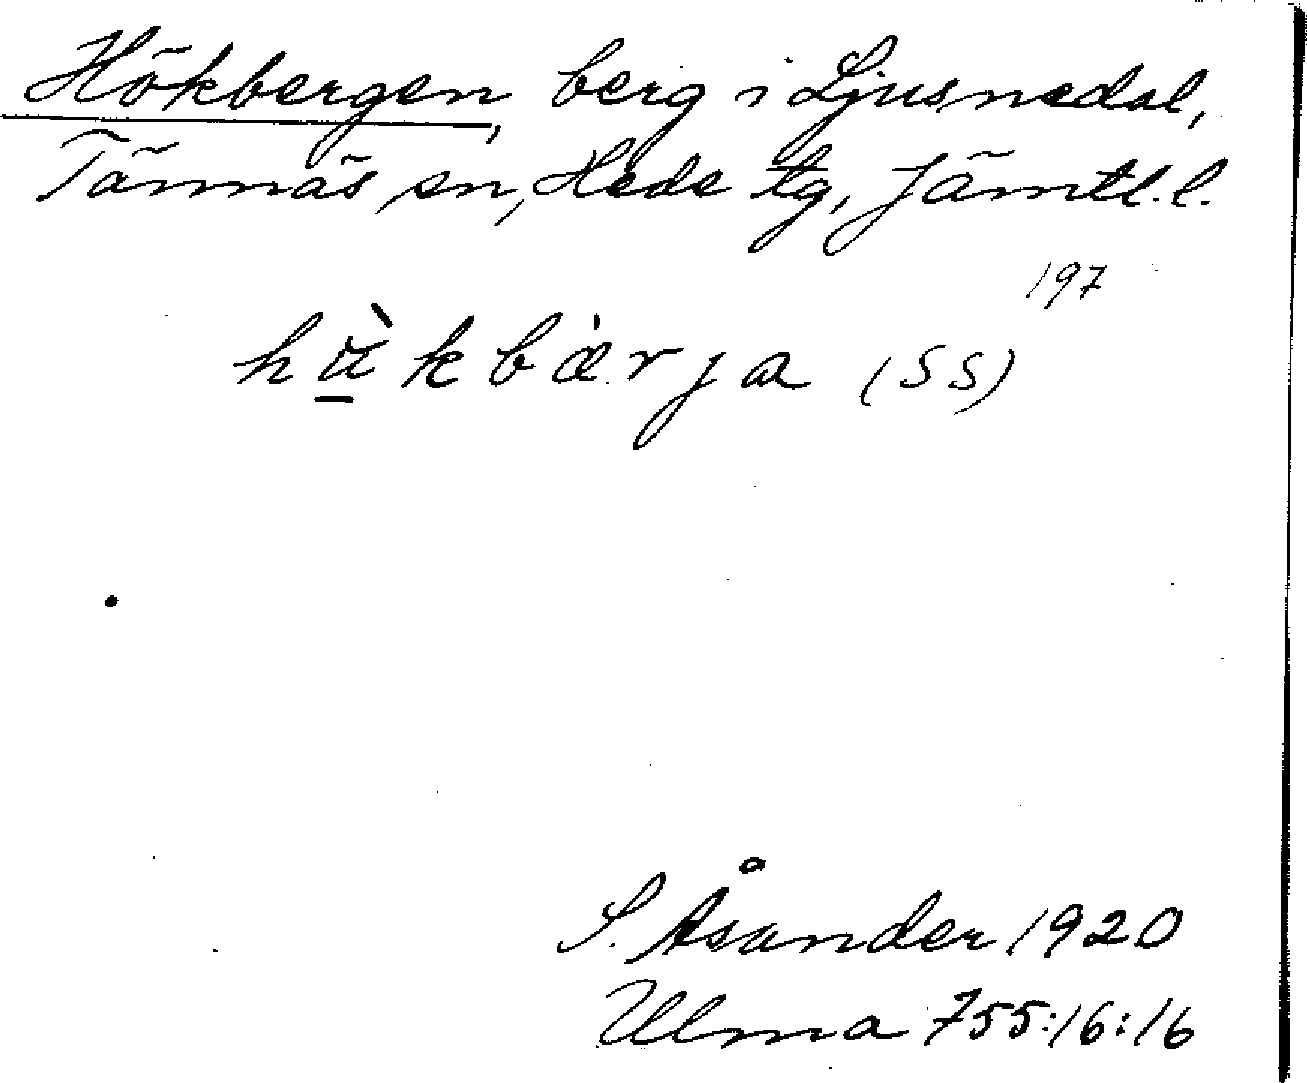 Hökbergen, berg i Ljusnedal,
Tännäs sn, Hede tg, Jämtl. l.
197
hù̲kbærja (SS)
S. Åsander 1920
Ulma 755:16:16